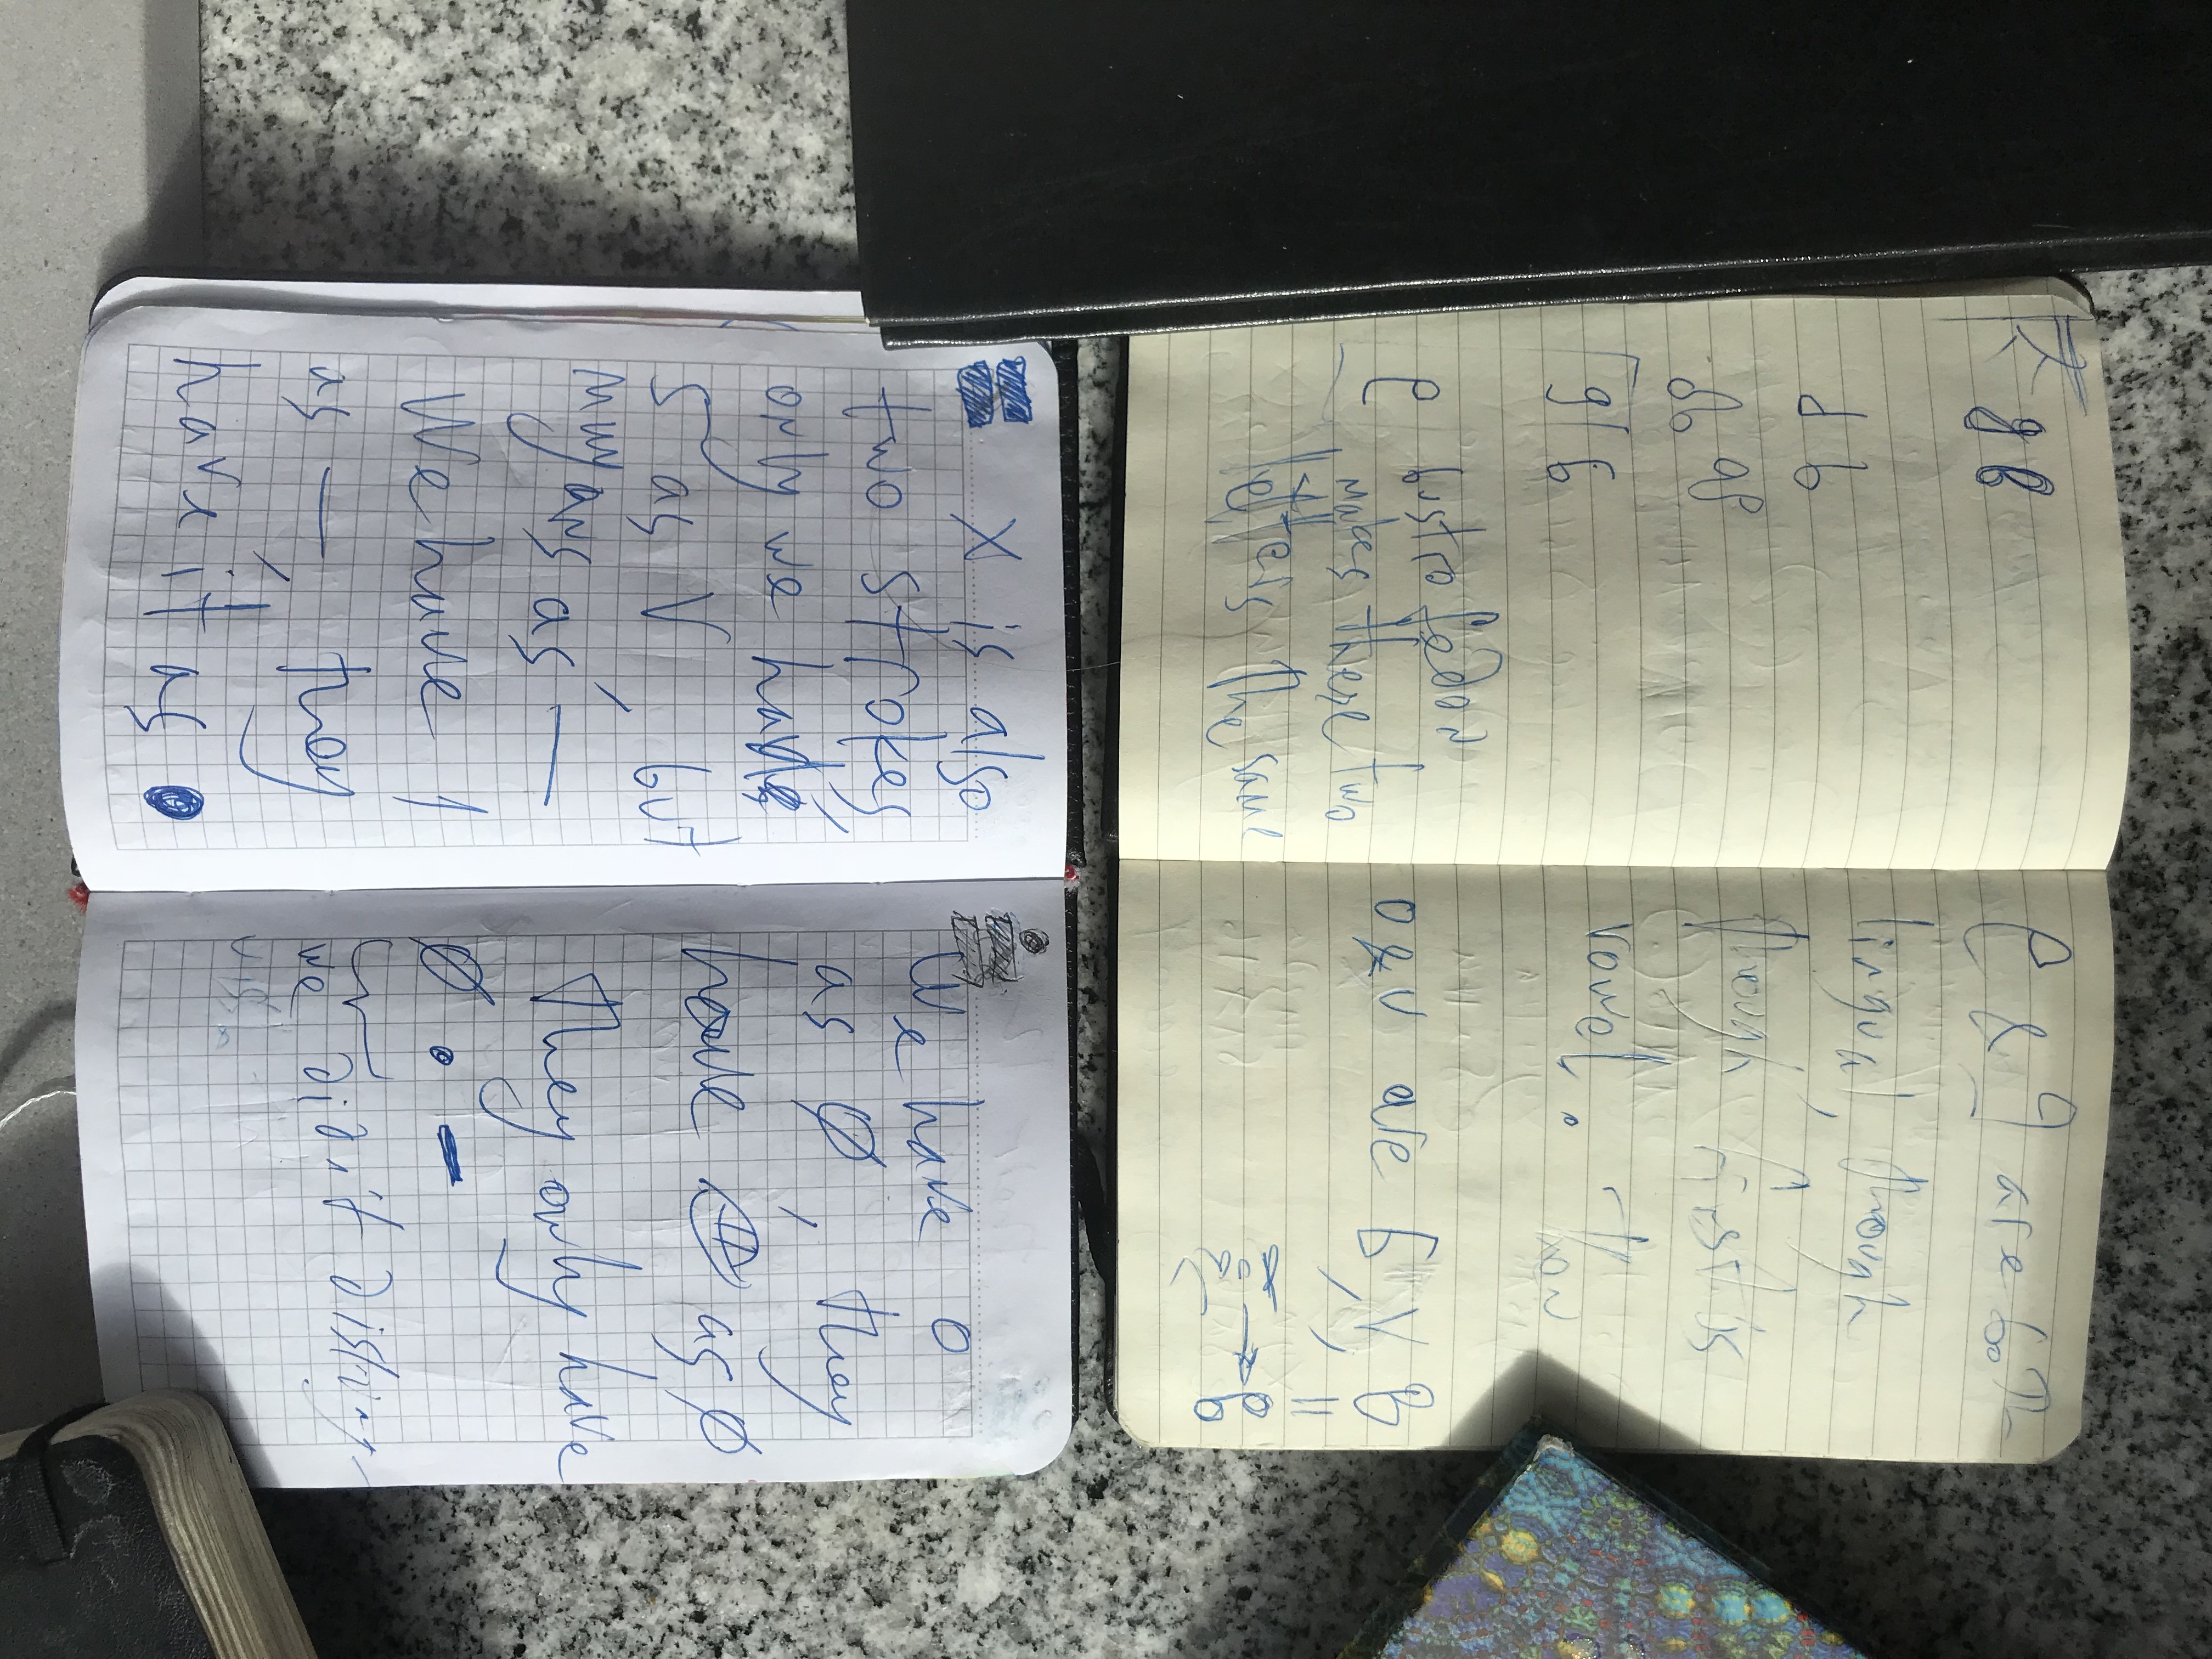 K
g B
d b
do op
g б
e bustrofedon
makes there two
letters the same
e & g are both
lingual, though
though first is
vowel. Then
o & v are б V, B
=
8
X is also
two strokes,
only we have
S as V but
as —
We have 1
as —, they
have it as ●
We have O
as Ø, they
have as Ø
They only have
Ø . -
we did it disting-